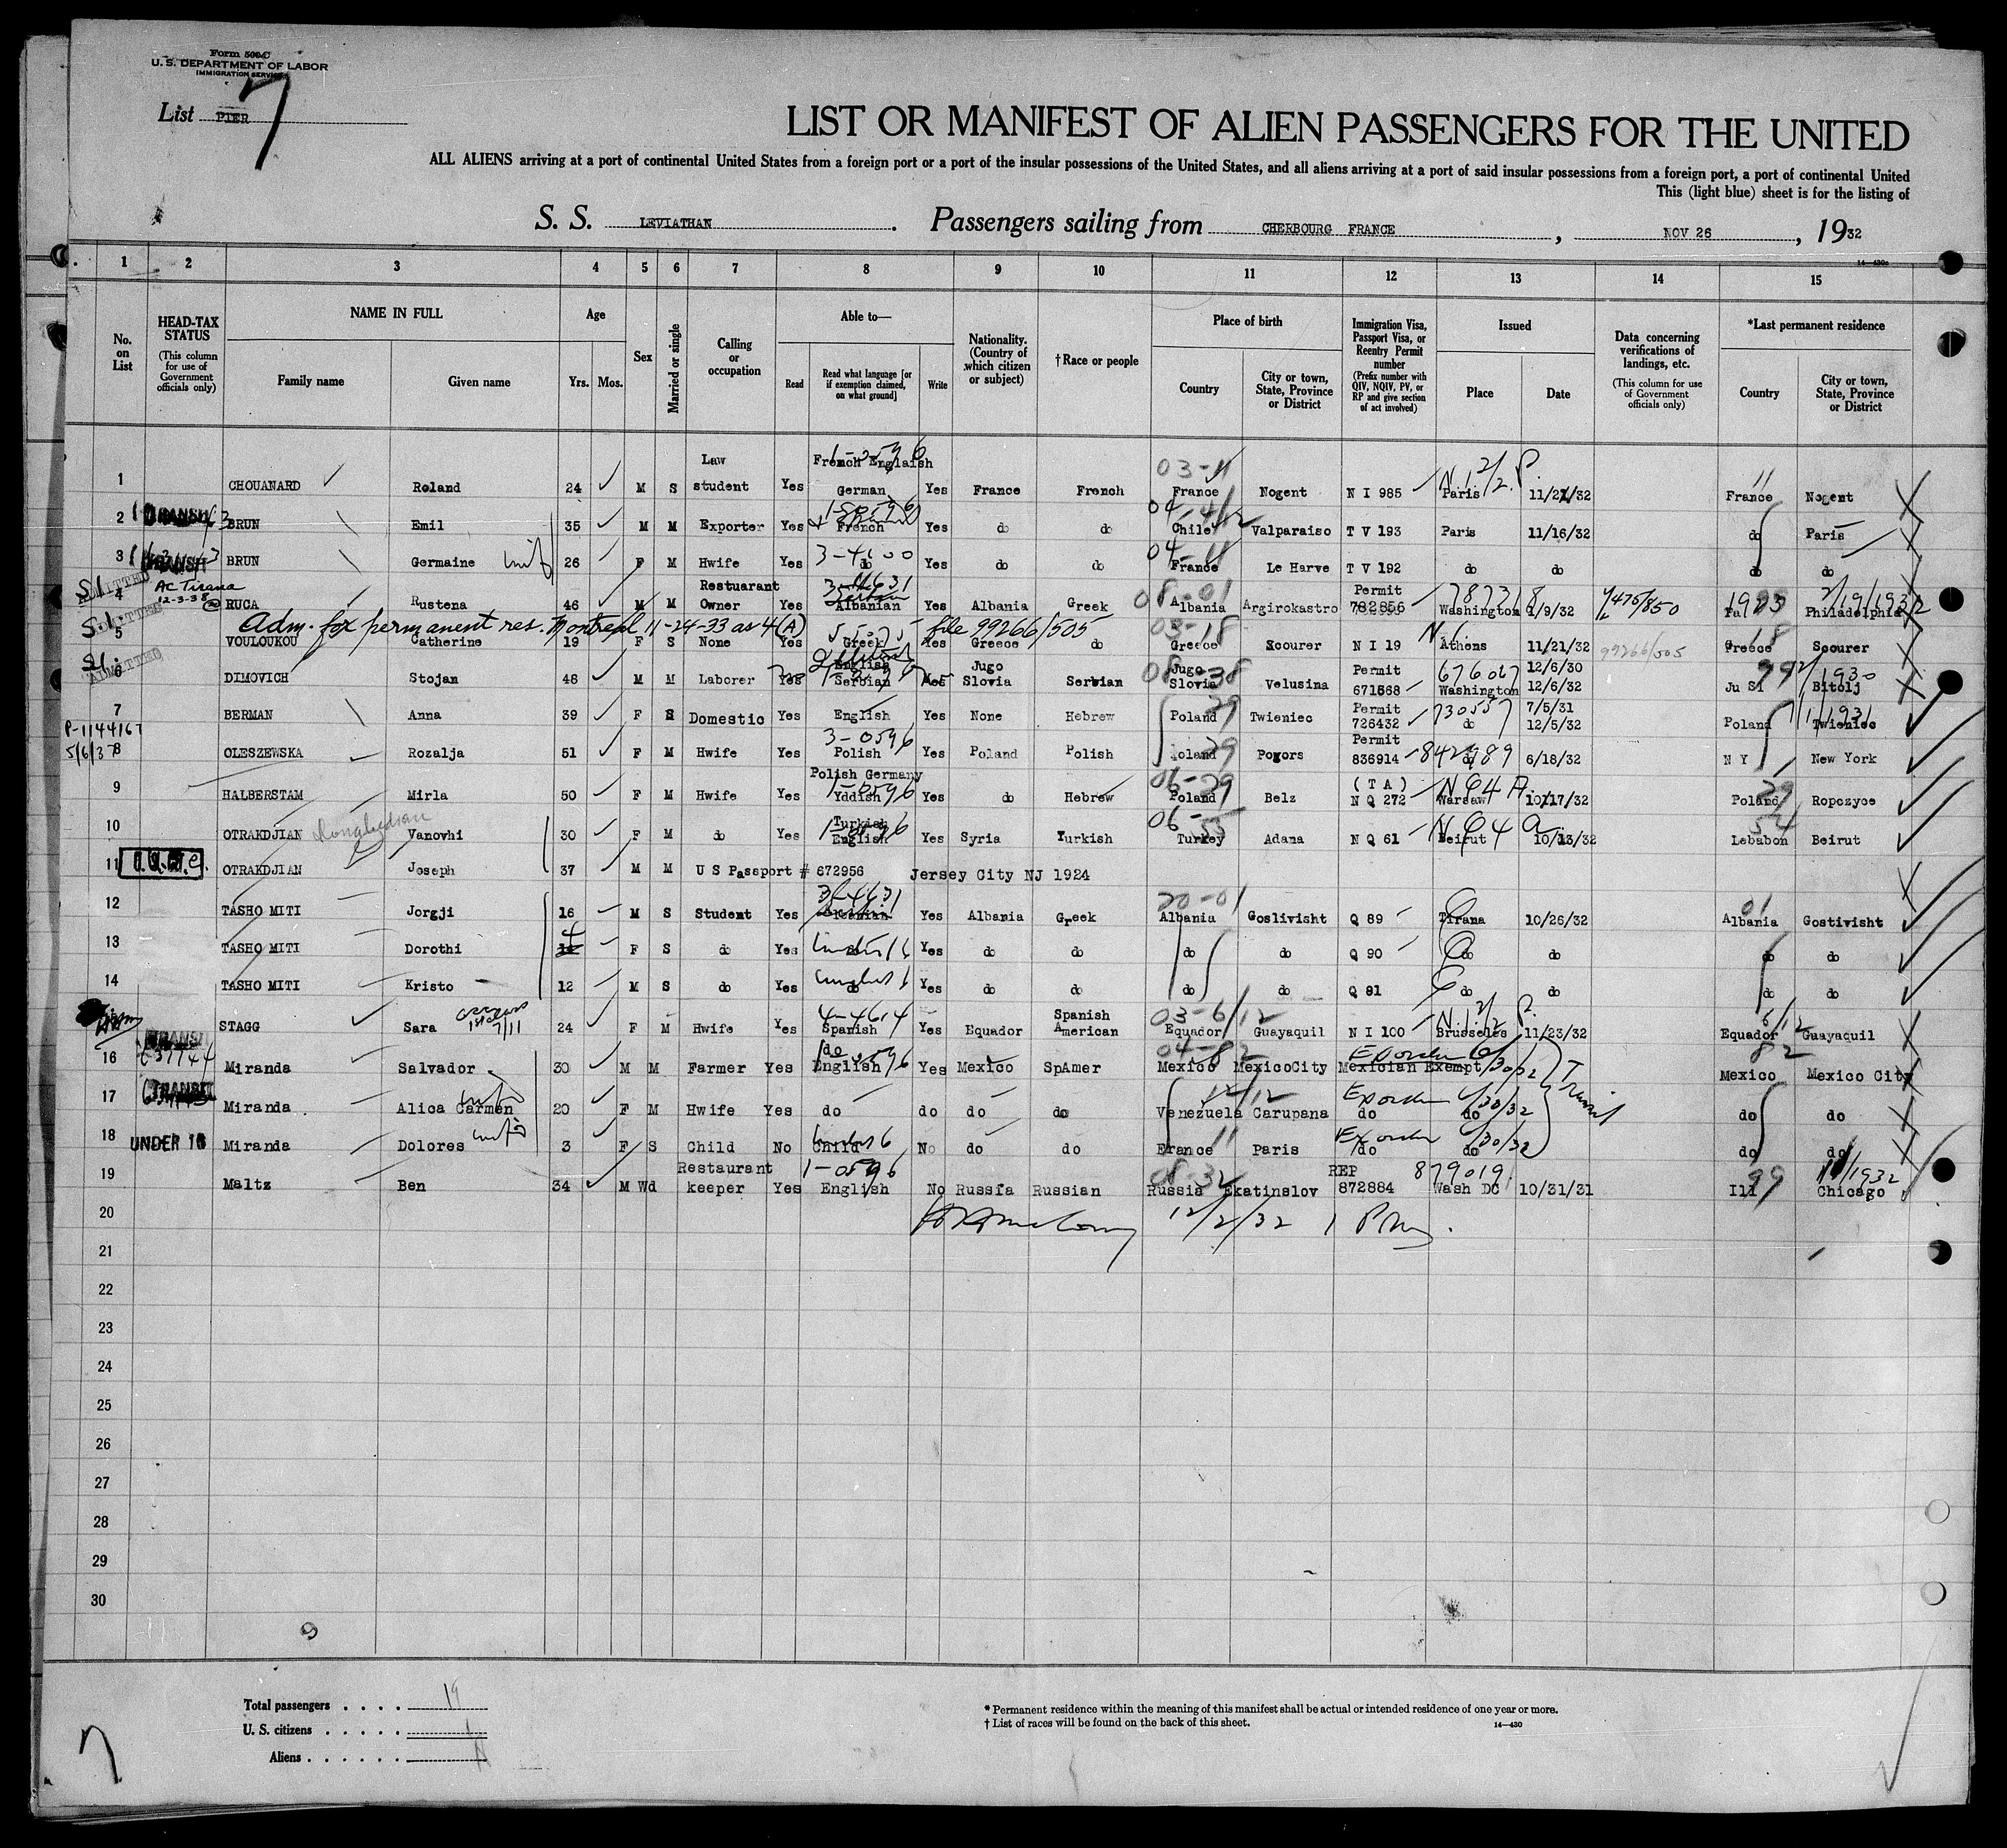 Form 500-C
U. S. DEPARTMENT OF LABOR
IMMIGRATION SERVICE
List PIER 7
LIST OR MANIFEST OF ALIEN PASSENGERS FOR THE UNITED
ALL ALIENS arriving at a port of continental United States from a foreign port or a port of the insular possessions of the United States, and all aliens arriving at a port of said insular possessions from a foreign port, a port of continental United
This (light blue) sheet is for the listing of
S. S. LEVIATHAN. Passengers sailing from CHERBOURG FRANCE, NOV 26, 1932
14-430c
1 2 3 4 5 6 7 8 9 10 11 12 13 14 15
No. on List
HEAD-TAX STATUS (This column for use of Government officials only)
NAME IN FULL
Family name Given name
Age
Yrs. Mos.
Sex
Married or single
Calling or occupation
Able to—
Read Read what language [or if exemption claimed, on what ground] Write
Nationality. (Country of which citizen or subject)
†Race or people
Place of birth
Country City or town, State, Province or District
Immigration Visa, Passport Visa, or Reentry Permit number (Prefix number with QIV, NQIV, PV, or RP and give section of act involved)
Issued
Place Date
Data concerning verifications of landings, etc. (This column for use of Government officials only)
*Last permanent residence
Country City or town, State, Province or District
1 CHOUANARD Roland 24 M S Law student Yes French Englaish German Yes France French France Nogent N I 985 Paris 11/21/32 France Nogent
2 TRANSIT BRUN Emil 35 M M Exporter Yes French Yes do do Chile Valparaiso T V 193 Paris 11/16/32 do Paris
3 TRANSIT BRUN Germaine wife 26 F M Hwife Yes do Yes do do France Le Harve T V 192 do do do do
S.I. ADMITTED AC Tirana 12-3-38
4 RUCA Rustena 46 M M Restuarant Owner Yes Albanian Yes Albania Greek Albania Argirokastro Permit 782856 787318 Washington 1/9/32 476/850 Pa Philadelphia 2/19/1932
Adm. for permanent res. Montreal 11-24-33 as 4(A) file 99266/505
S.I. ADMITTED
5 VOULOUKOU Catherine 19 F S None Yes Greek Yes Greece do Greece Scourer N I 19 Athens 11/21/32 99266/505 Greece Scourer
S.I. ADMITTED
6 DIMOVICH Stojan 48 M M Laborer Yes Serbian Yes Jugo Slovia Serbian Jugo Slovia Velusina Permit 671568 676067 Washington 12/6/30 12/6/32 Ju Sl Bitolj 1930
7 BERMAN Anna 39 F S Domestic Yes English Yes None Hebrew Poland Twieniec Permit 726432 730557 do 7/5/31 12/5/32 Poland Twieniec 1/1/1931
P-1144167 5/6/37
8 OLESZEWSKA Rozalja 51 F M Hwife Yes 3-0596 Polish Yes Poland Polish Poland Pogors Permit 836914 842989 6/18/32 N Y New York
9 HALBERSTAM Mirla 50 F M Hwife Yes Polish Germany Yddish Yes do Hebrew Poland Belz (TA) N Q 272 Warsaw 10/17/32 Poland Ropczyce
10 OTRAKDJIAN Vanovhi 30 F M do Yes Turkish English Yes Syria Turkish Turkey Adana N Q 61 Beirut 10/13/32 Lebabon Beirut
11 OTRAKDJIAN Joseph 37 M M U S Passport # 672956 Jersey City NJ 1924
12 TASHO MITI Jorgji 16 M S Student Yes Yes Albania Greek Albania Goslivisht Q 89 Tirana 10/26/32 Albania Gostivisht
13 TASHO MITI Dorothi F S do Yes under 16 Yes do do do do Q 90 do do do do
14 TASHO MITI Kristo 12 M S do Yes under 16 do Yes do do do do Q 81 do do do do
STAGG Sara 24 F M Hwife Yes 4-4614 Spanish Yes Equador Spanish American Equador Guayaquil N I 100 Brusseles 11/23/32 Equador Guayaquil
16 TRANSIT Miranda Salvador 30 M M Farmer Yes English Yes Mexico SpAmer Mexico MexicoCity Mexician Exempt 6/30/32 Transit Mexico Mexico City
17 TRANSIT Miranda Alica Carmen wife 20 F M Hwife Yes do do do do Venezuela Carupana do do 6/30/32 do do
18 UNDER 16 Miranda Dolores 3 F S Child No Child under 16 No do do France Paris do do 6/30/32 do do
19 Maltz Ben 34 M Wd Restaurant keeper Yes 1-0596 English No Russia Russian Russia Ekatinslov REP 872884 879019 Wash DC 10/31/31 Ill Chicago 1932
12/2/32 1 PM
20
21
22
23
24
25
26
27
28
29
30
Total passengers . . . . 19
U. S. citizens . . . . . 1
Aliens . . . . . .
* Permanent residence within the meaning of this manifest shall be actual or intended residence of one year or more.
† List of races will be found on the back of this sheet.
14—430
7